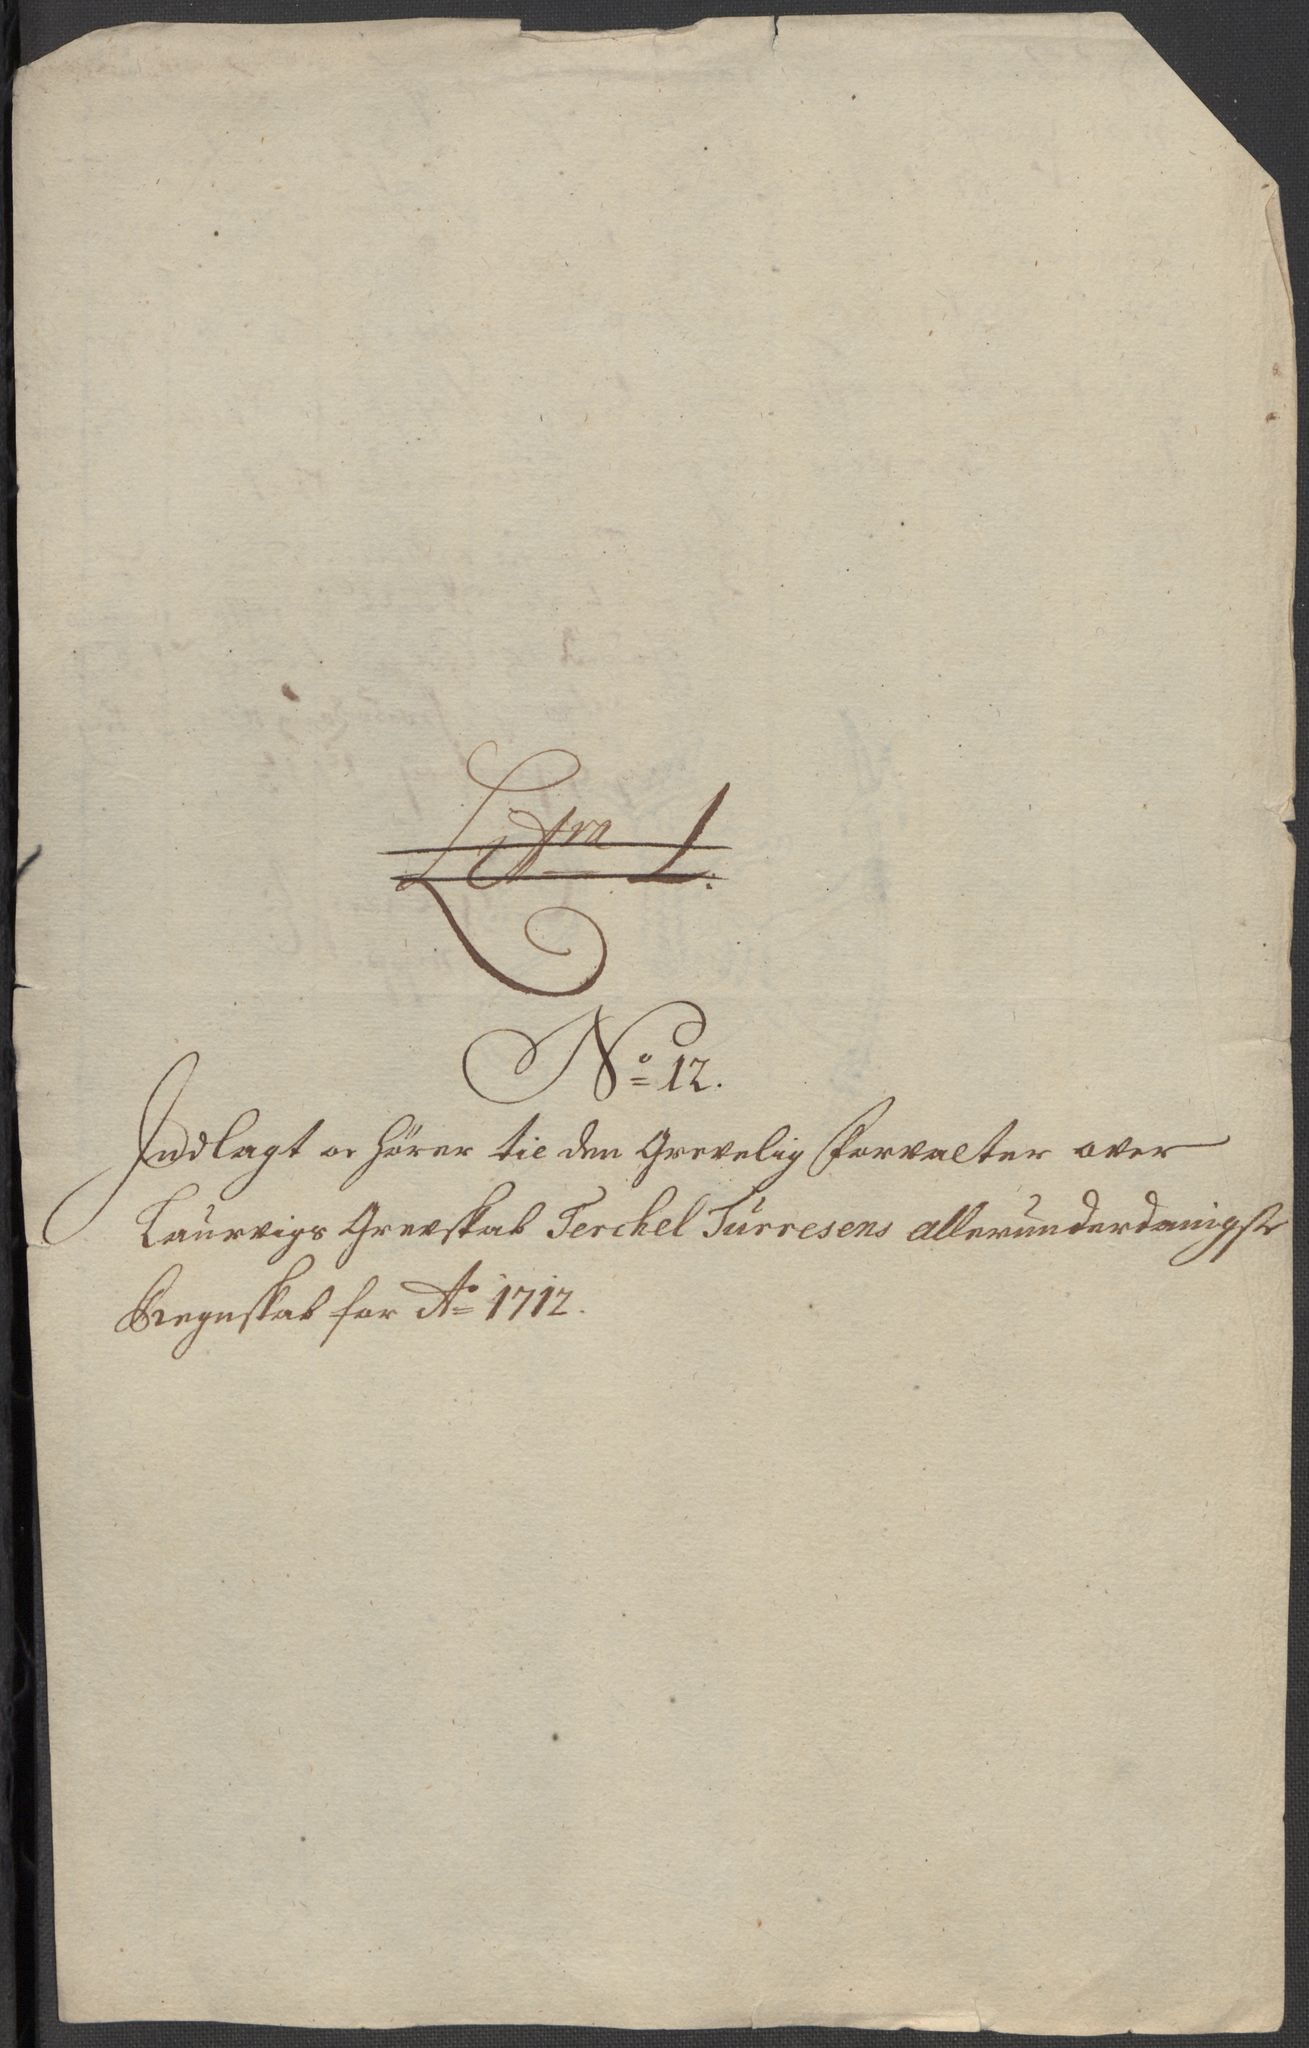 Litra L.
No 12.
Indlagt oc hörer til den Grevelig Forvalter over
Laurvigs Grevskab Terchel Türresens allerunderdanigste
Regnskab for Ao 1712.